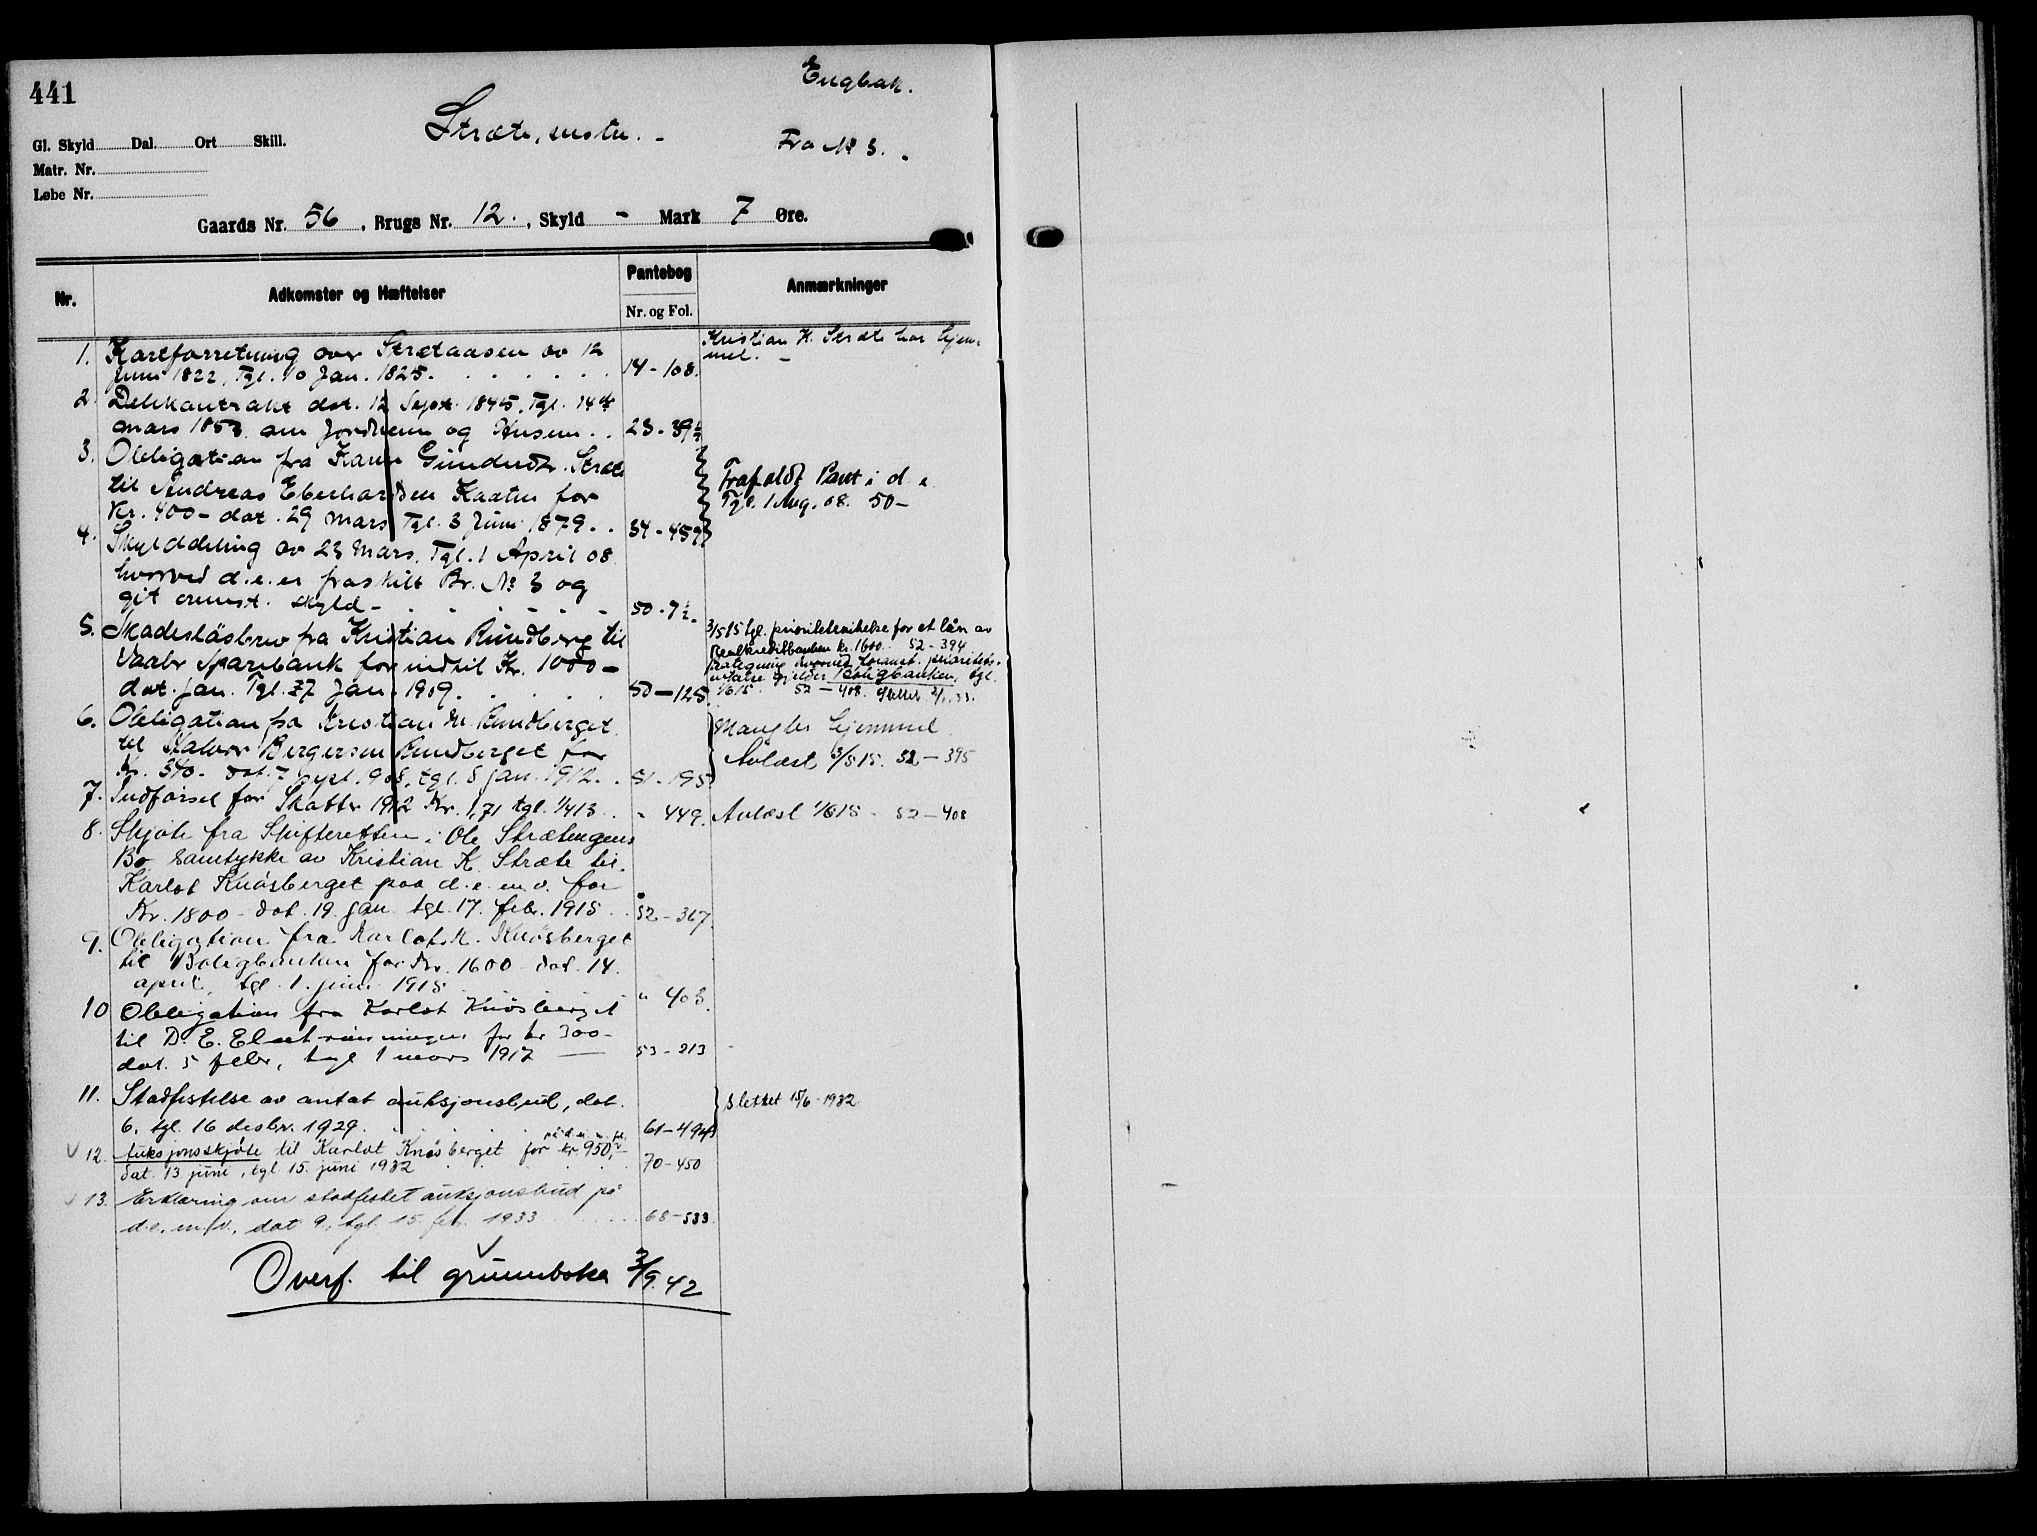 441
Engbak.
Stræte, nestre. -
Fra No 3.
Gl. Skyld Dal. Ort Skill.
Matr. Nr.
Løbe Nr.
Gaards Nr. 56, Brugs Nr. 12., Skyld - Mark 7 Øre.
Nr. Adkomster og Hæftelser Pantebog Anmærkninger
Nr. og Fol.
1. Kartforretning over Strætaasen av 12
juni 1822, Tgl. 10 Jan. 1825. 14-108.
Kristian K. Stræte har hjem-
mel. -
2. Delekontrakt dat. 12 Sept. 1845, Tgl. 14de
mars 1853 om Jordveien og Husene.. 23-39½
3. Obligation fra Karen Gundersdtr. Stræte
til Andreas Eberhardsen Kaaten for
Kr. 400- dat. 29 mars Tgl. 3 Juni 1879.. 34-459
Frafaldt Pant i d. e.
Tgl. 1 Aug. 08. 50-
4. Skylddeling av 23 Mars, Tgl. 1 April 08
hvorved d.e. er fraskilt Br. No 3 og
git ovennst. skyld- 50-7½.
5. Skadesløsbrev fra Kristian Rundberg til
Vaaler Sparebank for indtil Kr. 1000-
dat. jan. Tgl. 27 Jan. 1909. 50-125.
3/5 15 tgl. prioritetsvikelse for et lån av
Realkreditbanken kr. 1600. 52-394
Paategning hvorved foranst. prioritets-
vikelse gjelder Boligbanken, tgl.
1/6 15. 52-408. Slettet
6. Obligation fra Kristian M. Rundberget
til Halvor Bergersen Rundberget for
Kr. 340- dat. 7 sept. 908, tgl. 8 jan. 1912.. 51-195
Mangler hjemmel
Avlæst 3/5 15. 52-395
7. Indførsel for Skatter 1912 Kr. 1,71 tgl. 1/4 13.. " 449.
Avlæst 1/6 15 - 52-408
8. Skjøte fra Skifteretten i Ole Strætengens
Bo samtykke av Kristian K. Stræte til
Karlot Knøsberget paa d.e. m.v. for
Kr. 1800- dat. 19 jan. tgl. 17. febr. 1915.. 52-367
9. Obligation fra Karlot K. Knøsberget
til Boligbanken for Kr. 1600- dat. 14.
april, tgl. 1. juni 1915 " 403.
10 Obligation fra Karlot Knøsberget
til D. E. for kr 300-
dat. 5 febr, tgl 1 mars 1917 53-213
11. Stadfestelse av antat auksjonsbud, dat.
6. tgl. 16 desbr. 1929. 61-494
Slettet 15/6-1932
12. Auksjonsskjøte til Karlot Knøsberget på d.e. m. fl. for kr 950,-
dat. 13 juni, tgl 15. juni 1932 70-450
13. Erklæring om stadfestet auksjonsbud på
d.e. m/v., dat 9., tgl. 15. feb. 1933 68-533.
Overf. til grunnboka 3/9.42